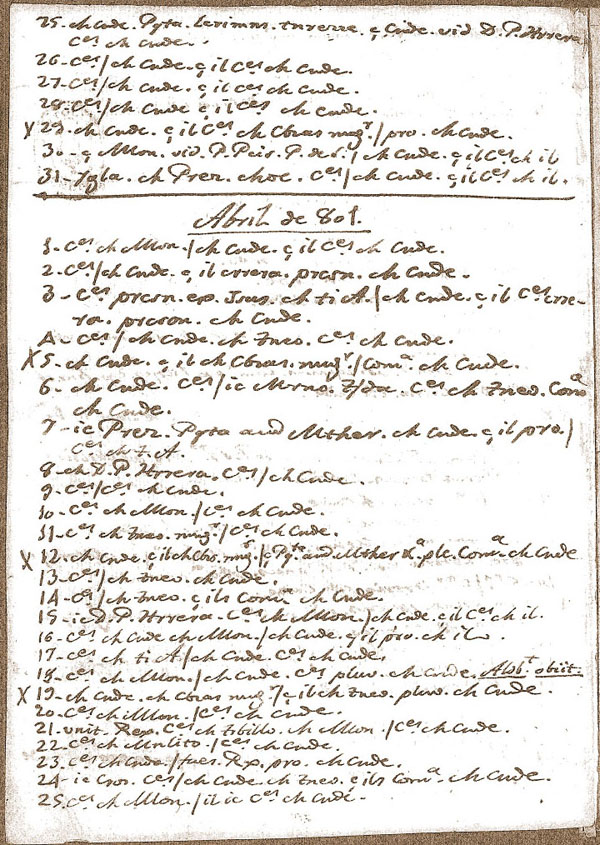 25. ch Cnde. Pyta. Lerimns. tnrezze. ç Cnde. vid D. P. Hrrera
Ces ch Cnde.
26-Ces/ch Cnde. ç il Ces ch Cnde.
27-Ces/ch Cnde. ç il Ces ch Cnde.
28-Ces/ch Cnde ç il Ces ch Cnde.
X 29. ch Cnde. ç il Ces ch Cbras mugr/pro. ch Cnde.
30-ç Mon. vid. P. P. de S./ch Cnde. ç il Ces ch il
31-Ygla. ch Prez. choc. Ces/ch Cnde. ç il Ces ch il.
Abril de 801.
1-Ces ch Mon./ch Cnde. ç il Ces ch Cnde.
2-Ces/ch Cnde. ç il errera. prcsn. ch Cnde.
3-Ces prcsn. ex. Jsus. ch ti A./ch Cnde. ç il Ces erre-
ra. prcson. ch Cnde.
4-Ces/ch Cnde. ch Zneo. Ces ch Cnde.
X 5. ch Cnde. ç il ch Cbras. mugr/Coma. ch Cnde.
6. ch Cnde. Ces/ic Mrno. Ces ch Zneo. Coma
ch Cnde.
7-ic Prez. Pyta and Mther. ch Cnde. ç il pro./
Ces ch t. A.
8-ch D. P. Hrrera. Ces/ch Cnde.
9-Ces/Ces ch Cnde.
10-Ces ch Mon./Ces ch Cnde.
11-Ces ch Zneo. mugr/Ces ch Cnde.
X 12. ch Cnde. ç il ch Cbrs. mugr/ç Pyta. and Mther ple. Coma. ch Cnde
13-Ces/ch Zneo. ch Cnde.
14-Ces/ch Zneo. ç ils Coma ch Cnde.
15-ic D. P. Hrrera-Ces ch Mon./ch Cnde. ç il Ces ch il.
16-Ces ch Cnde ch Mon./ch Cnde. ç il pro. ch il.
17-Ces ch ti A/ch Cnde. Ces ch Cnde.
18-Ces ch Mon./ch Cnde. Ces pluv. ch Cnde. obiit.
X 19. ch Cnde. ch Cbras mugr/ç il ch Zneo. pluv. ch Cnde.
20-Ces ch Mon./Ces ch Cnde.
21. unit. Rex. Ces ch Zrbillo. ch Mon./Ces ch Cnde.
22-Ces ch Mnlito./Ces ch Cnde.
23. Ces ch Cnde./fues. Rxp. pro. ch Cnde.
24-ic Csos. Ces/ch Cnde. ch Zneo. ç ils Coma. ch Cnde.
25. Ces ch Mon./il ic Ces ch Cnde.